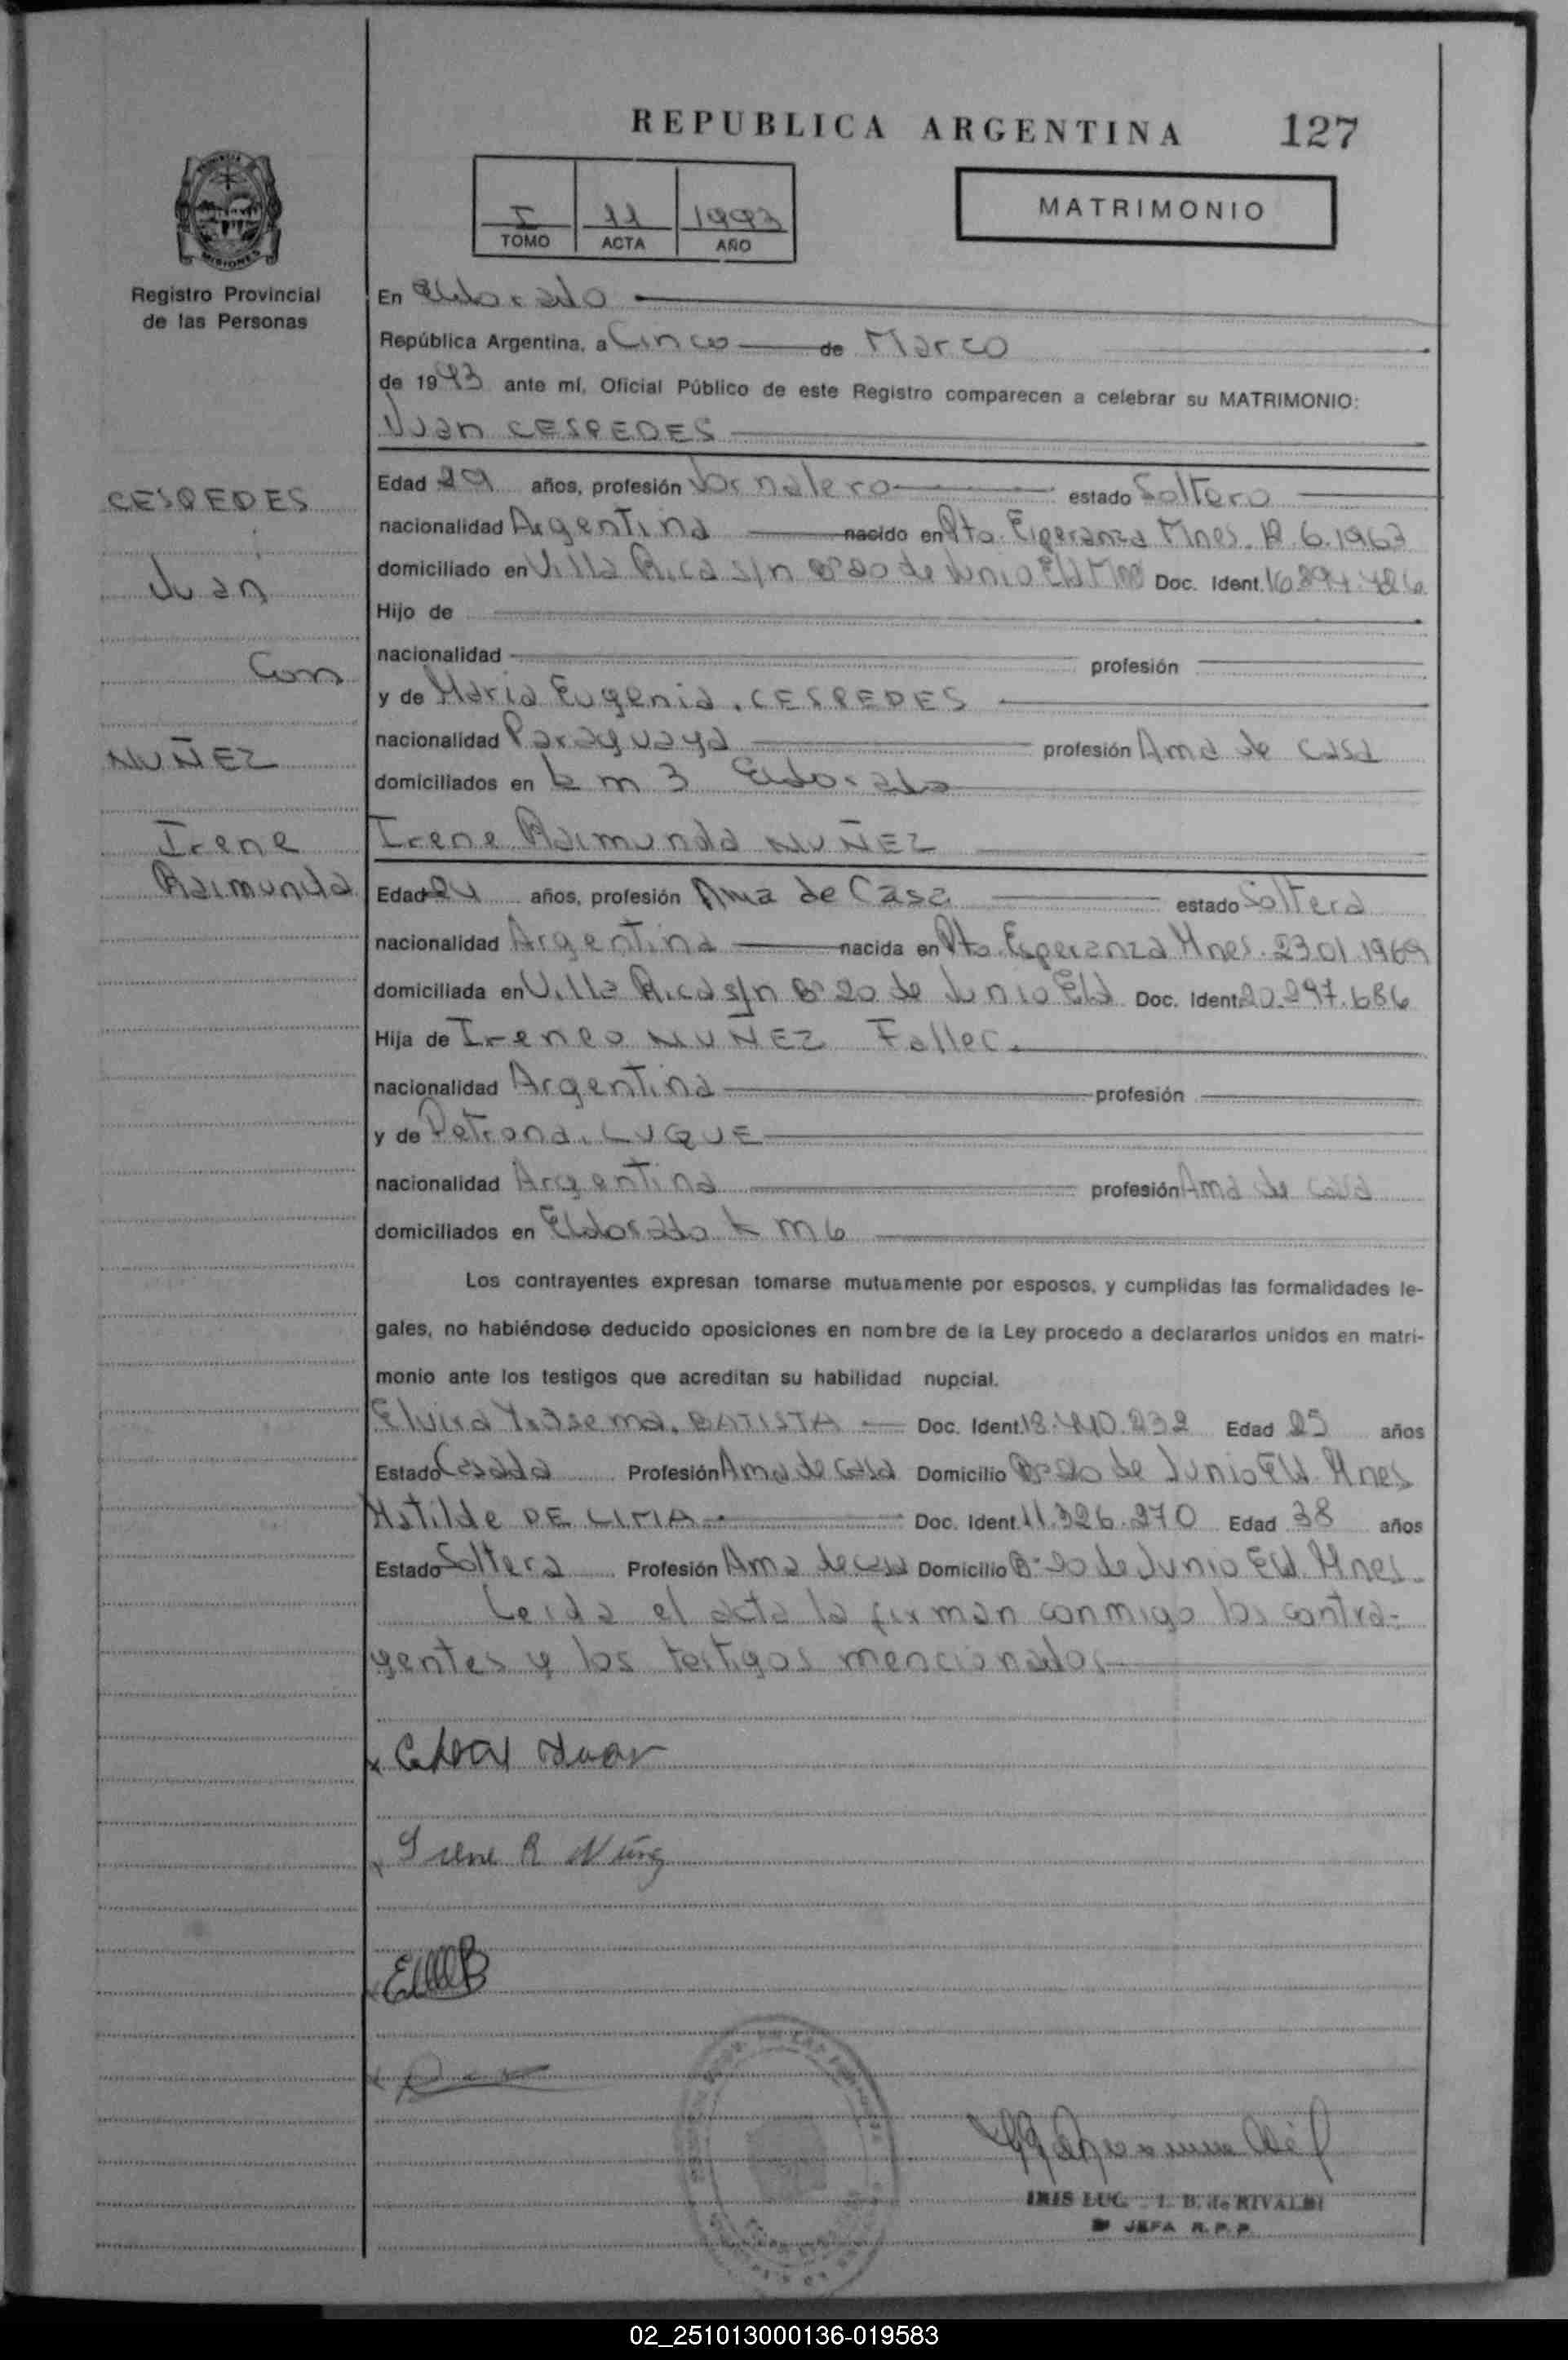 REPUBLICA ARGENTINA 127
I 11 1993
TOMO ACTA AÑO
MATRIMONIO
MISIONES
Registro Provincial
de las Personas
En Eldorado
República Argentina, a Cinco de Marzo
de 1993 ante mí, Oficial Público de este Registro comparecen a celebrar su MATRIMONIO:
Juan CESPEDES
CESPEDES
Juan
Con
NUÑEZ
Irene
Raimunda
Edad 29 años, profesión Jornalero estado Soltero
nacionalidad Argentina nacido en Pto. Esperanza Mnes. 12.6.1963
domiciliado en Villa Rica s/n Bº 20 de Junio Eld Mnes Doc. Ident. 16.894.486
Hijo de
nacionalidad profesión
y de Maria Eugenia. CESPEDES
nacionalidad Paraguaya profesión Ama de casa
domiciliados en km 3 Eldorado
Irene Raimunda NUÑEZ
Edad 24 años, profesión Ama de Casa estado Soltera
nacionalidad Argentina nacida en Pto. Esperanza Mnes. 23.01.1969
domiciliada en Villa Rica s/n Bº 20 de Junio Eld Doc. Ident. 20.297.686
Hija de Ireneo NUÑEZ Fallec.
nacionalidad Argentina profesión
y de Petrona. LUQUE
nacionalidad Argentina profesión Ama de casa
domiciliados en Eldorado km 6
Los contrayentes expresan tomarse mutuamente por esposos, y cumplidas las formalidades le-
gales, no habiéndose deducido oposiciones en nombre de la Ley procedo a declararlos unidos en matri-
monio ante los testigos que acreditan su habilidad nupcial.
Elvira BATISTA Doc. Ident. Edad 25 años
Estado Casada Profesión Ama de casa Domicilio Bº 20 de Junio Eld. Mnes
Matilde DE LIMA Doc. Ident. 11.326.270 Edad 38 años
Estado Soltera Profesión Ama de casa Domicilio Bº 20 de Junio Eld. Mnes.
Leida el acta la firman conmigo los contra-
yentes y los testigos mencionados
Juan
Irene R Nuñez
IRIS LUC B. de RIVALDI
JEFA R. P. P.
02_251013000136-019583